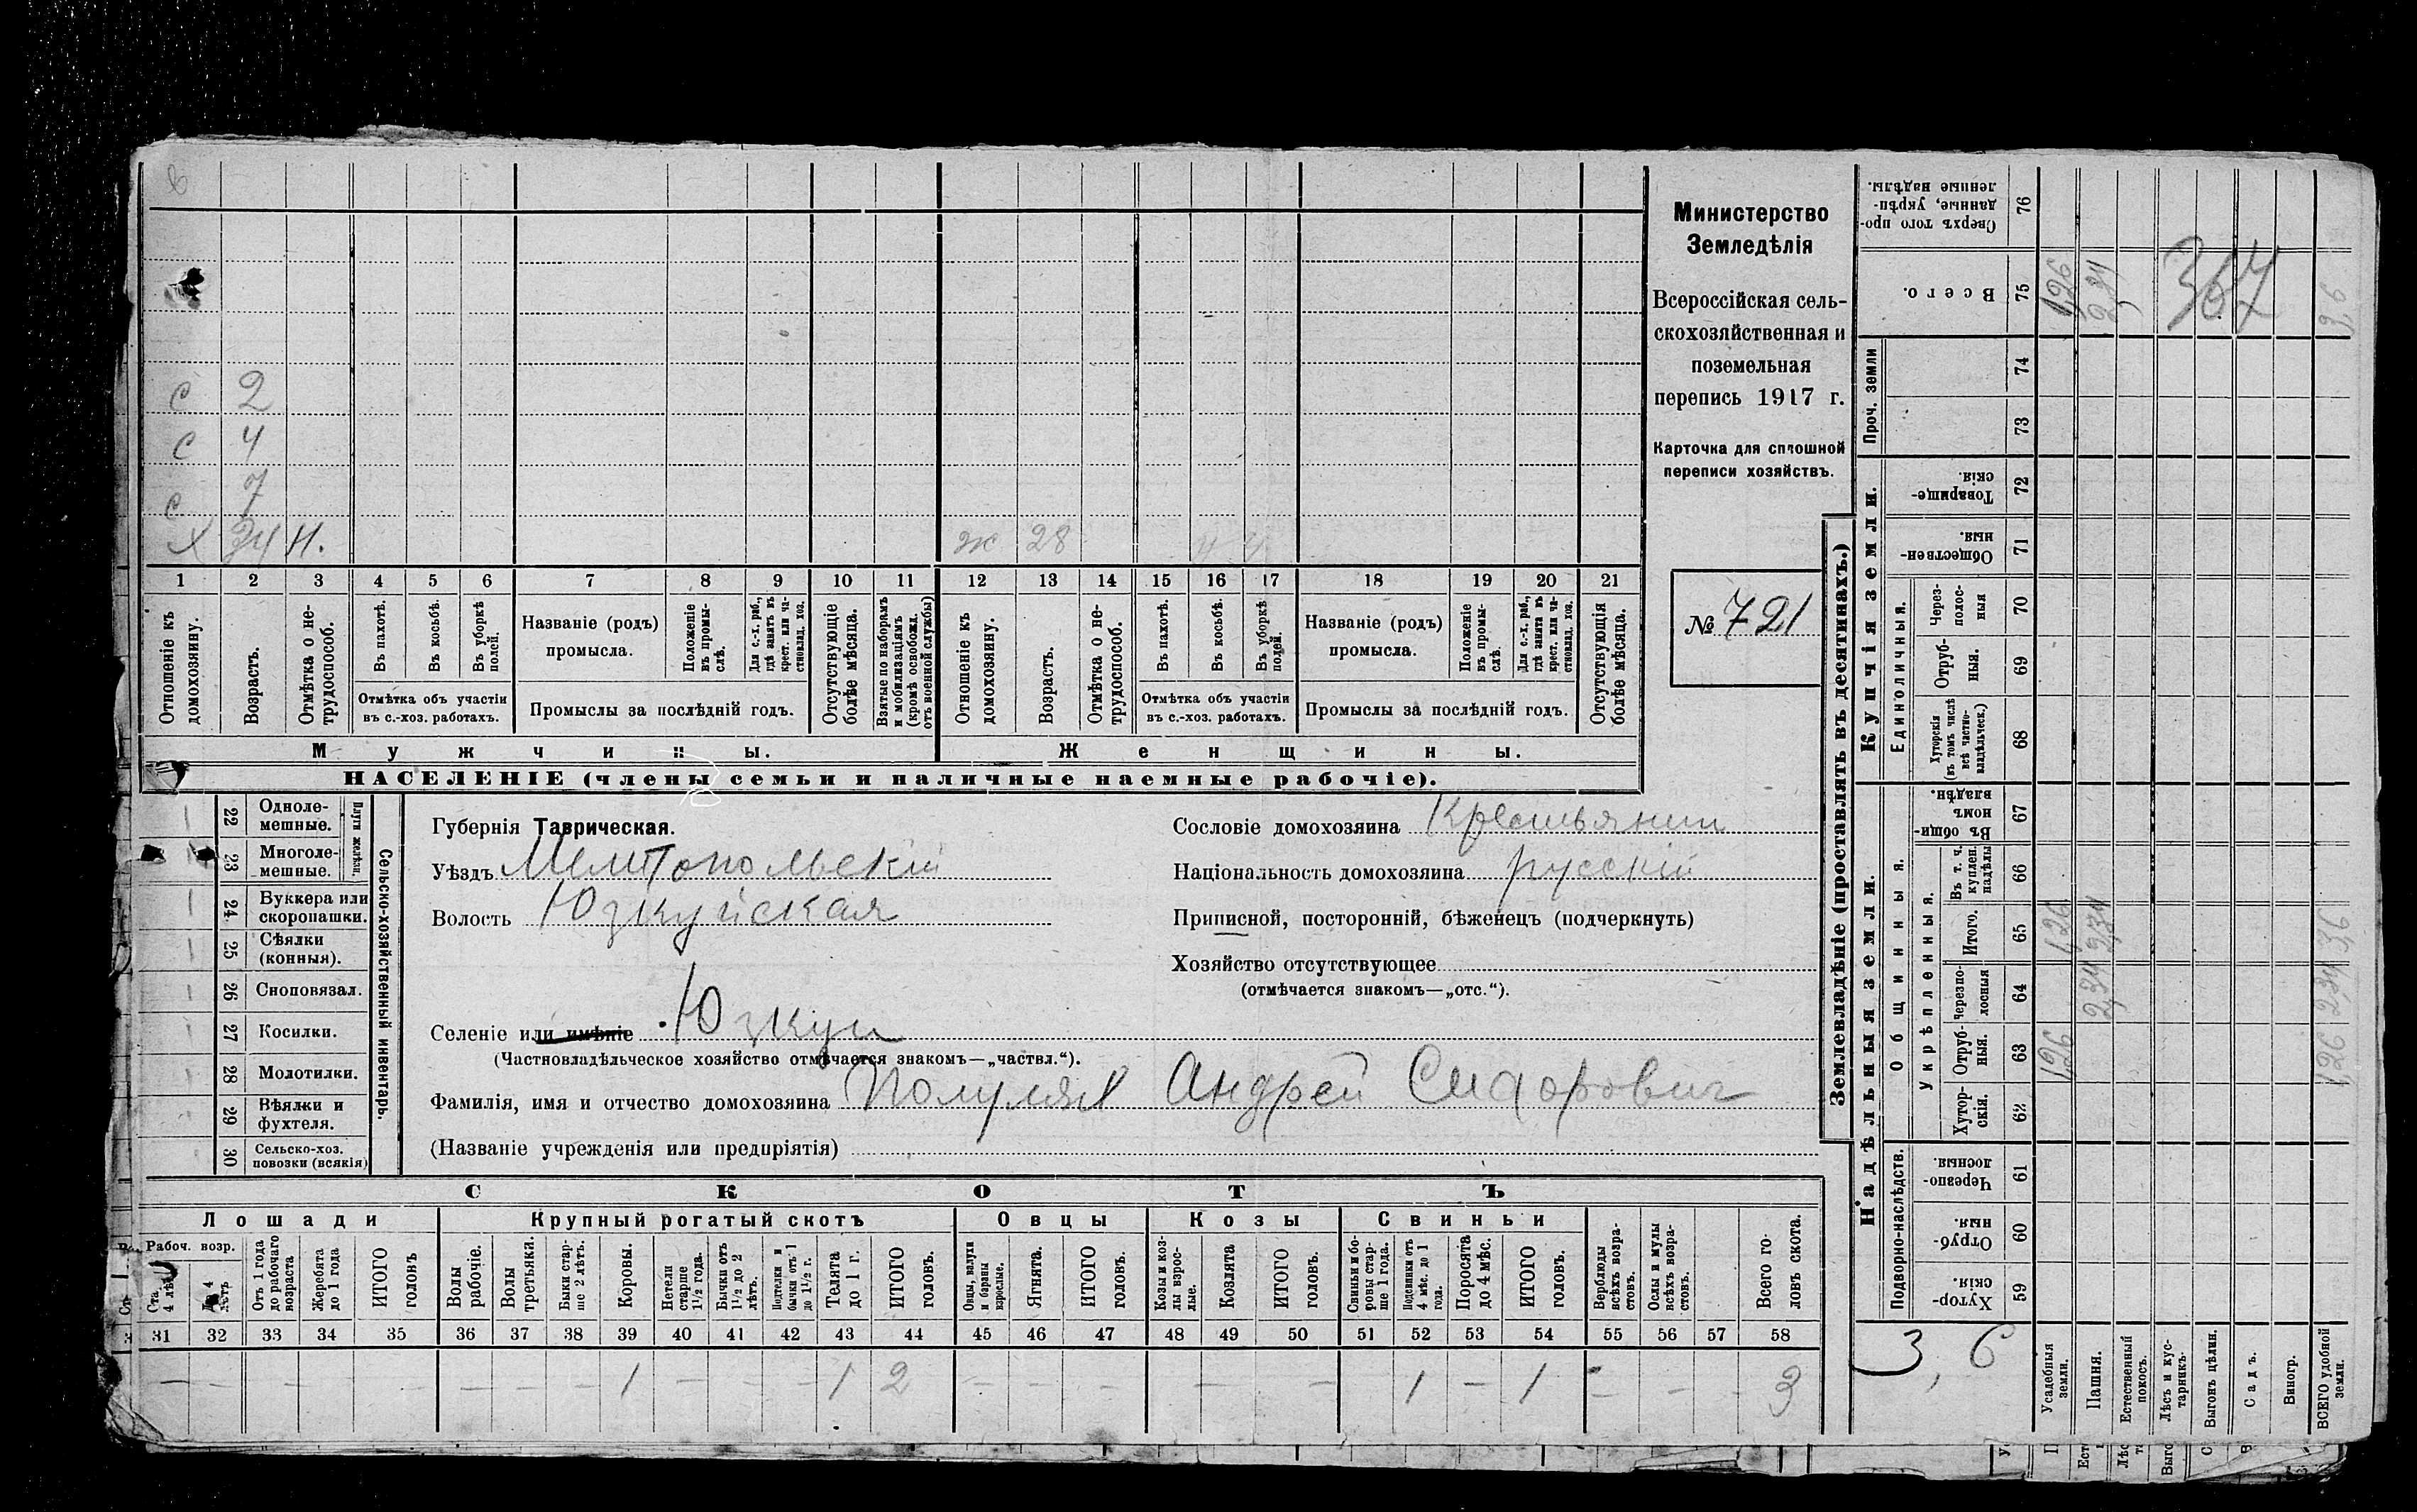 с 2
с 4
с 7
х 34 н. ж 28 ч ч
1 2 3 4 5 6 7 8 9 10 11 12 13 14 15 16 17 18 19 20 21
Отношеніе къ домохозяину.
Возрастъ.
Отмѣтка о не-трудоспособ.
Въ пахотѣ.
Въ косьбѣ.
Въ уборкѣ полей.
Отмѣтка объ участіи
въ с.-хоз. работахъ.
Названіе (родъ)
промысла.
Положеніе въ промы-слѣ.
Для с.-х. раб., гдѣ занятъ въ крест. или ча-стновлад. хоз.
Промыслы за послѣдній годъ.
Отсутствующіе болѣе мѣсяца.
Взятые по наборамъ и мобилизаціямъ (кромѣ освобожд. отъ военной службы)
Отношеніе къ домохозяину.
Возрастъ.
Отмѣтка о не-трудоспособ.
Въ пахотѣ.
Въ косьбѣ.
Въ уборкѣ полей.
Отмѣтка объ участіи
въ с.-хоз. работахъ.
Названіе (родъ)
промысла.
Положеніе въ промы-слѣ.
Для с.-х. раб., гдѣ занята въ крест. или ча-стновлад. хоз.
Промыслы за послѣдній годъ.
Отсутствующія болѣе мѣсяца.
Мужчины. Женщины.
НАСЕЛЕНІЕ (члены семьи и наличные наемные рабочіе).
Министерство
Земледѣлія
Всероссійская сель-
скохозяйственная и
поземельная
перепись 1917 г.
Карточка для сплошной
переписи хозяйствъ.
№ 721
22 Одноле-
мешные.
23 Многоле-
мешные.
Плуги желѣзн.
24 Буккера или
скоропашки.
25 Сѣялки
(конныя).
26 Сноповязал.
27 Косилки.
28 Молотилки.
29 Вѣялки и
фухтеля.
30 Сельско-хоз.
повозки (всякія)
Сельско-хозяйственный инвентарь.
Губернія Таврическая.
Уѣздъ Мелитопольскій
Волость Юзкуйская
Селеніе или имѣніе Юзкуи
(Частновладѣльческое хозяйство отмѣчается знакомъ—„частвл.“).
Фамилія, имя и отчество домохозяина Полулях Андрей Сидорович
(Названіе учрежденія или предпріятія)
Сословіе домохозяина Крестьянин
Національность домохозяина русскій
Приписной, посторонній, бѣженецъ (подчеркнуть)
Хозяйство отсутствующее
(отмѣчается знакомъ—„отс.“).
СКОТЪ
Лошади Крупный рогатый скотъ Овцы Козы Свиньи
Рабоч. возр.
От 1 года до рабочаго возраста
Жеребята до 1 года
ИТОГО головъ
Волы рабочіе.
Волы третьяки.
Быки стар-ше 2 лѣтъ.
Коровы.
Нетели старше 1½ года.
Бычки отъ 1½ до 2 лѣтъ.
Подтелки и бычки отъ 1 до 1½ г.
Телята до 1 г.
ИТОГО головъ.
Овцы, валухи и бараны взрослые.
Ягнята.
ИТОГО головъ.
Козы и коз-лы взрос-лые.
Козлята
ИТОГО головъ.
Свиньи и бо-ровы стар-ше 1 года.
Подсвинки отъ 4 мѣс. до 1 года.
Поросята до 4 мѣс.
ИТОГО головъ.
Верблюды всѣхъ возра-стовъ.
Ослы и мулы всѣхъ возра-стовъ.
Всего го-ловъ скота.
31 32 33 34 35 36 37 38 39 40 41 42 43 44 45 46 47 48 49 50 51 52 53 54 55 56 57 58
— — — — — — — — 1 — — — 1 2 — — — — — 1 — 1 — — — 3
Землевладѣніе (проставлять въ десятинахъ.)
Купчія земли.
Надѣльныя земли.
Проч. земли
Единоличныя.
Общинныя.
Укрѣпленныя.
Подворно-наслѣдств.
76 Сверхъ того про-данные, укрѣп-ленные надѣлы.
75 Всего. 1,26 2,34 367 3,6
74
73
72 Товарище-скія.
71 Обществен-ныя.
70 Через-полос-ныя
69 Отруб-ныя.
68 Хуторскія (въ томъ числѣ всѣ частно-владѣльческ.)
67 Въ общи-номъ владѣн.
66 Въ т. ч. куплен. надѣлы
65 Итого. 1,26 2,34 3,6
64 Черезпо-лосныя 2,34 2,34
63 Отруб-ныя. 1,26 1,26
62 Хутор-скія.
61 Черезпо-лосныя.
60 Отруб-ныя.
59 Хутор-скія.
3,6
Усадебныя земли.
Пашня.
Естественный покосъ.
Лѣсъ и кус-тарникъ.
Выгонъ цѣлин.
Садъ.
Виногр.
ВСЕГО удобной земли.